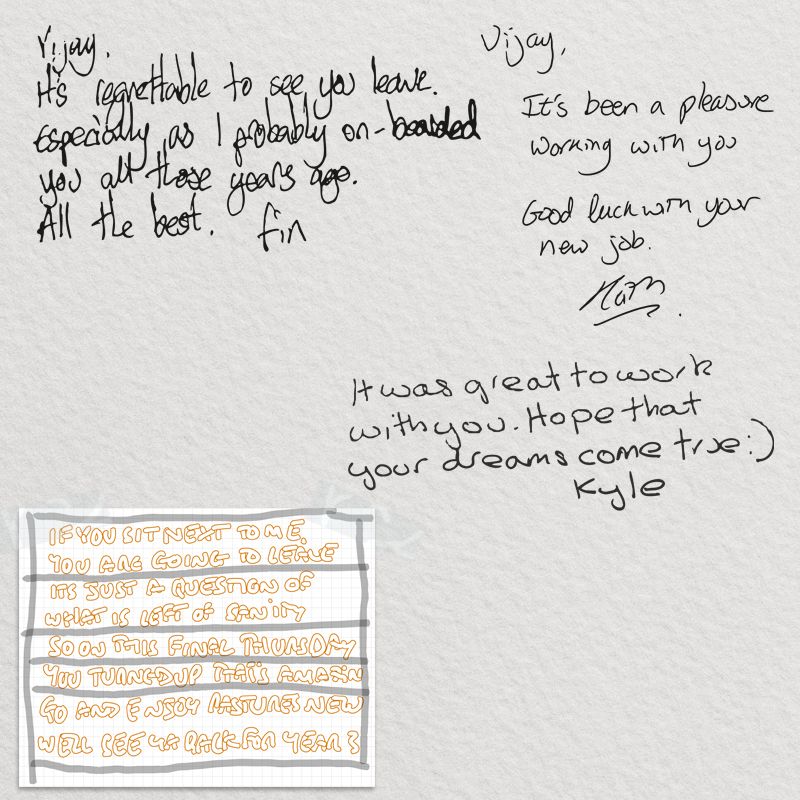 Vijay.
It's regrettable to see you leave.
Especially as I probably on-boarded
you all those years ago.
All the best. fin
Vijay,
It's been a pleasure
working with you
Good luck with your
new job.
It was great to work
with you. Hope that
your dreams come true :)
Kyle
IF YOU SIT NEXT TO ME.
YOU ARE GOING TO LEAVE
ITS JUST A QUESTION OF
WHAT IS LEFT OF SANITY
SO ON THIS FINAL THURSDAY
YOU TURNED UP THAT'S AMAZIN
GO AND ENJOY PASTURES NEW
WE'LL SEE YA BACK FOR YEAR 3